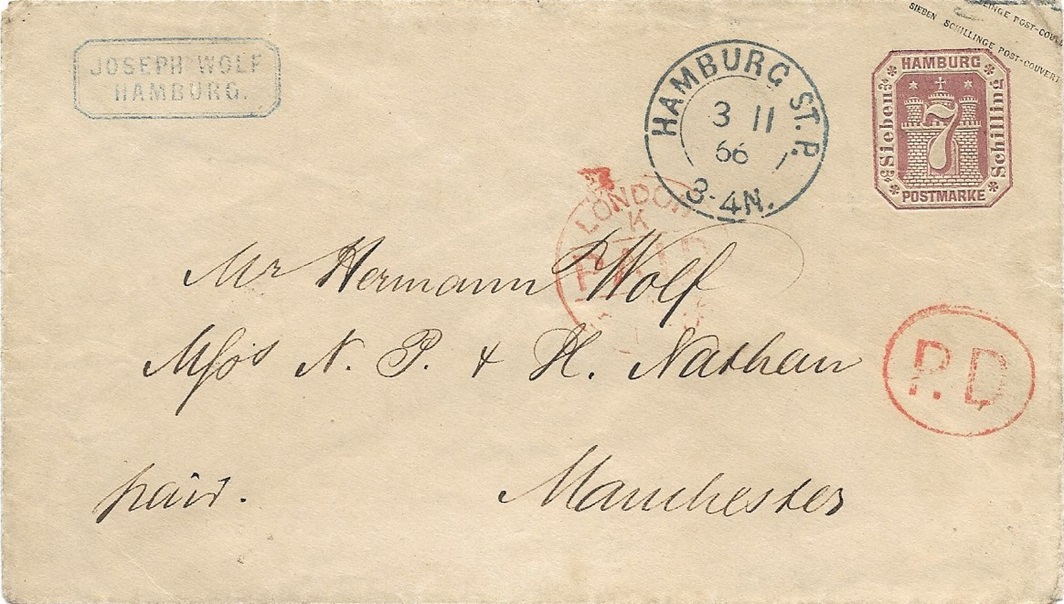 JOSEPH WOLF
HAMBURG.
HAMBURG ST. P.
3 11
66
3-4N.
SIEBEN SCHILLINGE POST-COUVERT
HAMBURG
Sieben
7
Schilling
POSTMARKE
LONDON
K
PAID
Mr Hermann Wolf
Mss N. P. & H. Nathan
P.D
paid.
Manchester